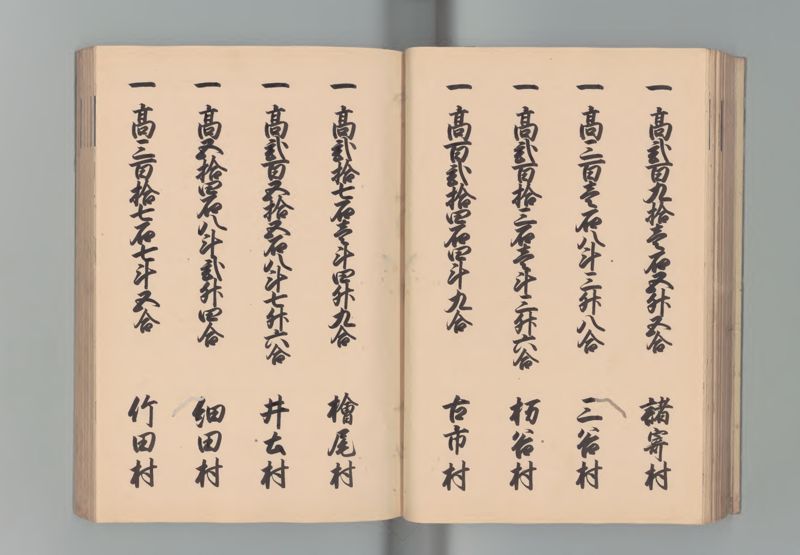 一 高弐百九拾壱石五升五合 諸寄村
一 高三百壱石八斗三升八合 三谷村
一 高弐百拾三石壱斗三升六合 栃谷村
一 高百弐拾四石四斗九合 古市村
一 高弐拾七石壱斗四升九合 檜尾村
一 高弐百五拾五石八斗七升六合 井土村
一 高五拾四石八斗弐升四合 細田村
一 高三百拾七石七斗五合 竹田村